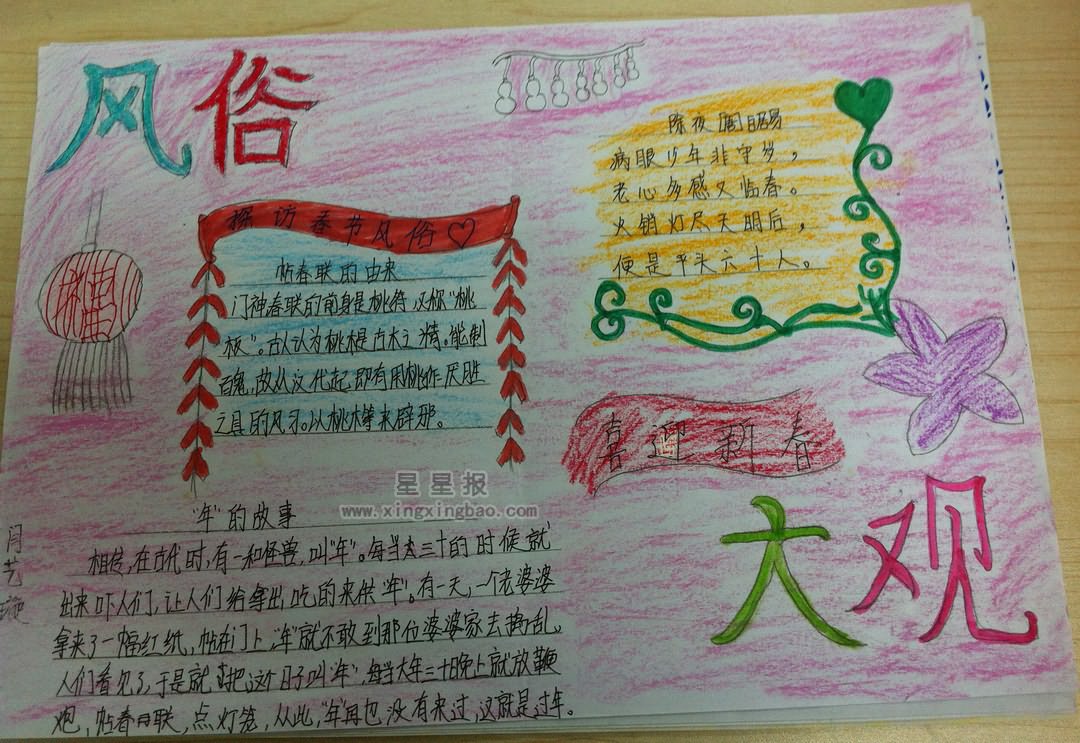 风俗
除夜 白居易
病眼少年非守岁，
老心多感又临春。
火销灯尽天明后，
便是平头六十人。
探访春节风俗
帖春联的由来
门神春联的前身是桃符，又称“桃
板”。古认为桃根是百木之精。能制
百鬼，故从汉代起，即有用桃作厌胜
之具的风习。以桃木等来辟邪。
喜迎新春
星星报
www.xingxingbao.com
“年”的故事
相传，在古代时，有一种怪兽，叫“年”。每当大三十的时候就
出来吓人们，让人们给拿出吃的来供“年”。有一天，一个老婆婆
拿来了一幅红纸，帖在门上，年就不敢到那位婆婆家去捣乱。
人们看见了，于是就把这个日子叫“年”，每当大年三十晚上就放鞭
炮，帖春联，点灯笼，从此，“年”再也没有来过，这就是过年。
大观
月艺